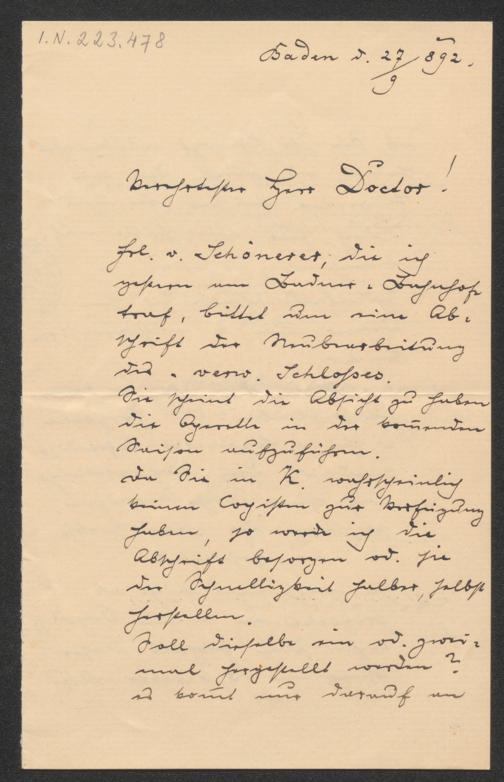 I.N. 223.478
Baden d. 27/9 892.
Verehrtester Herr Doctor!
Frl. v. Schönerer, die ich
gestern am Badner-Bahnhofe
traf, bittet um eine Ab-
schrift der Neubearbeitung
des "verw. Schlosses.
Sie scheint die Absicht zu haben
die Operette in der kom̅enden
Saison aufzuführen.
Da Sie in K. wahrscheinlich
keinen Copisten zur Verfügung
haben, so werde ich die
Abschrift besorgen od. sie
der Schnelligkeit halber, selbst
herstellen.
Soll dieselbe ein od. zwei-
mal hergestellt werden?
es kom̅t nur darauf an